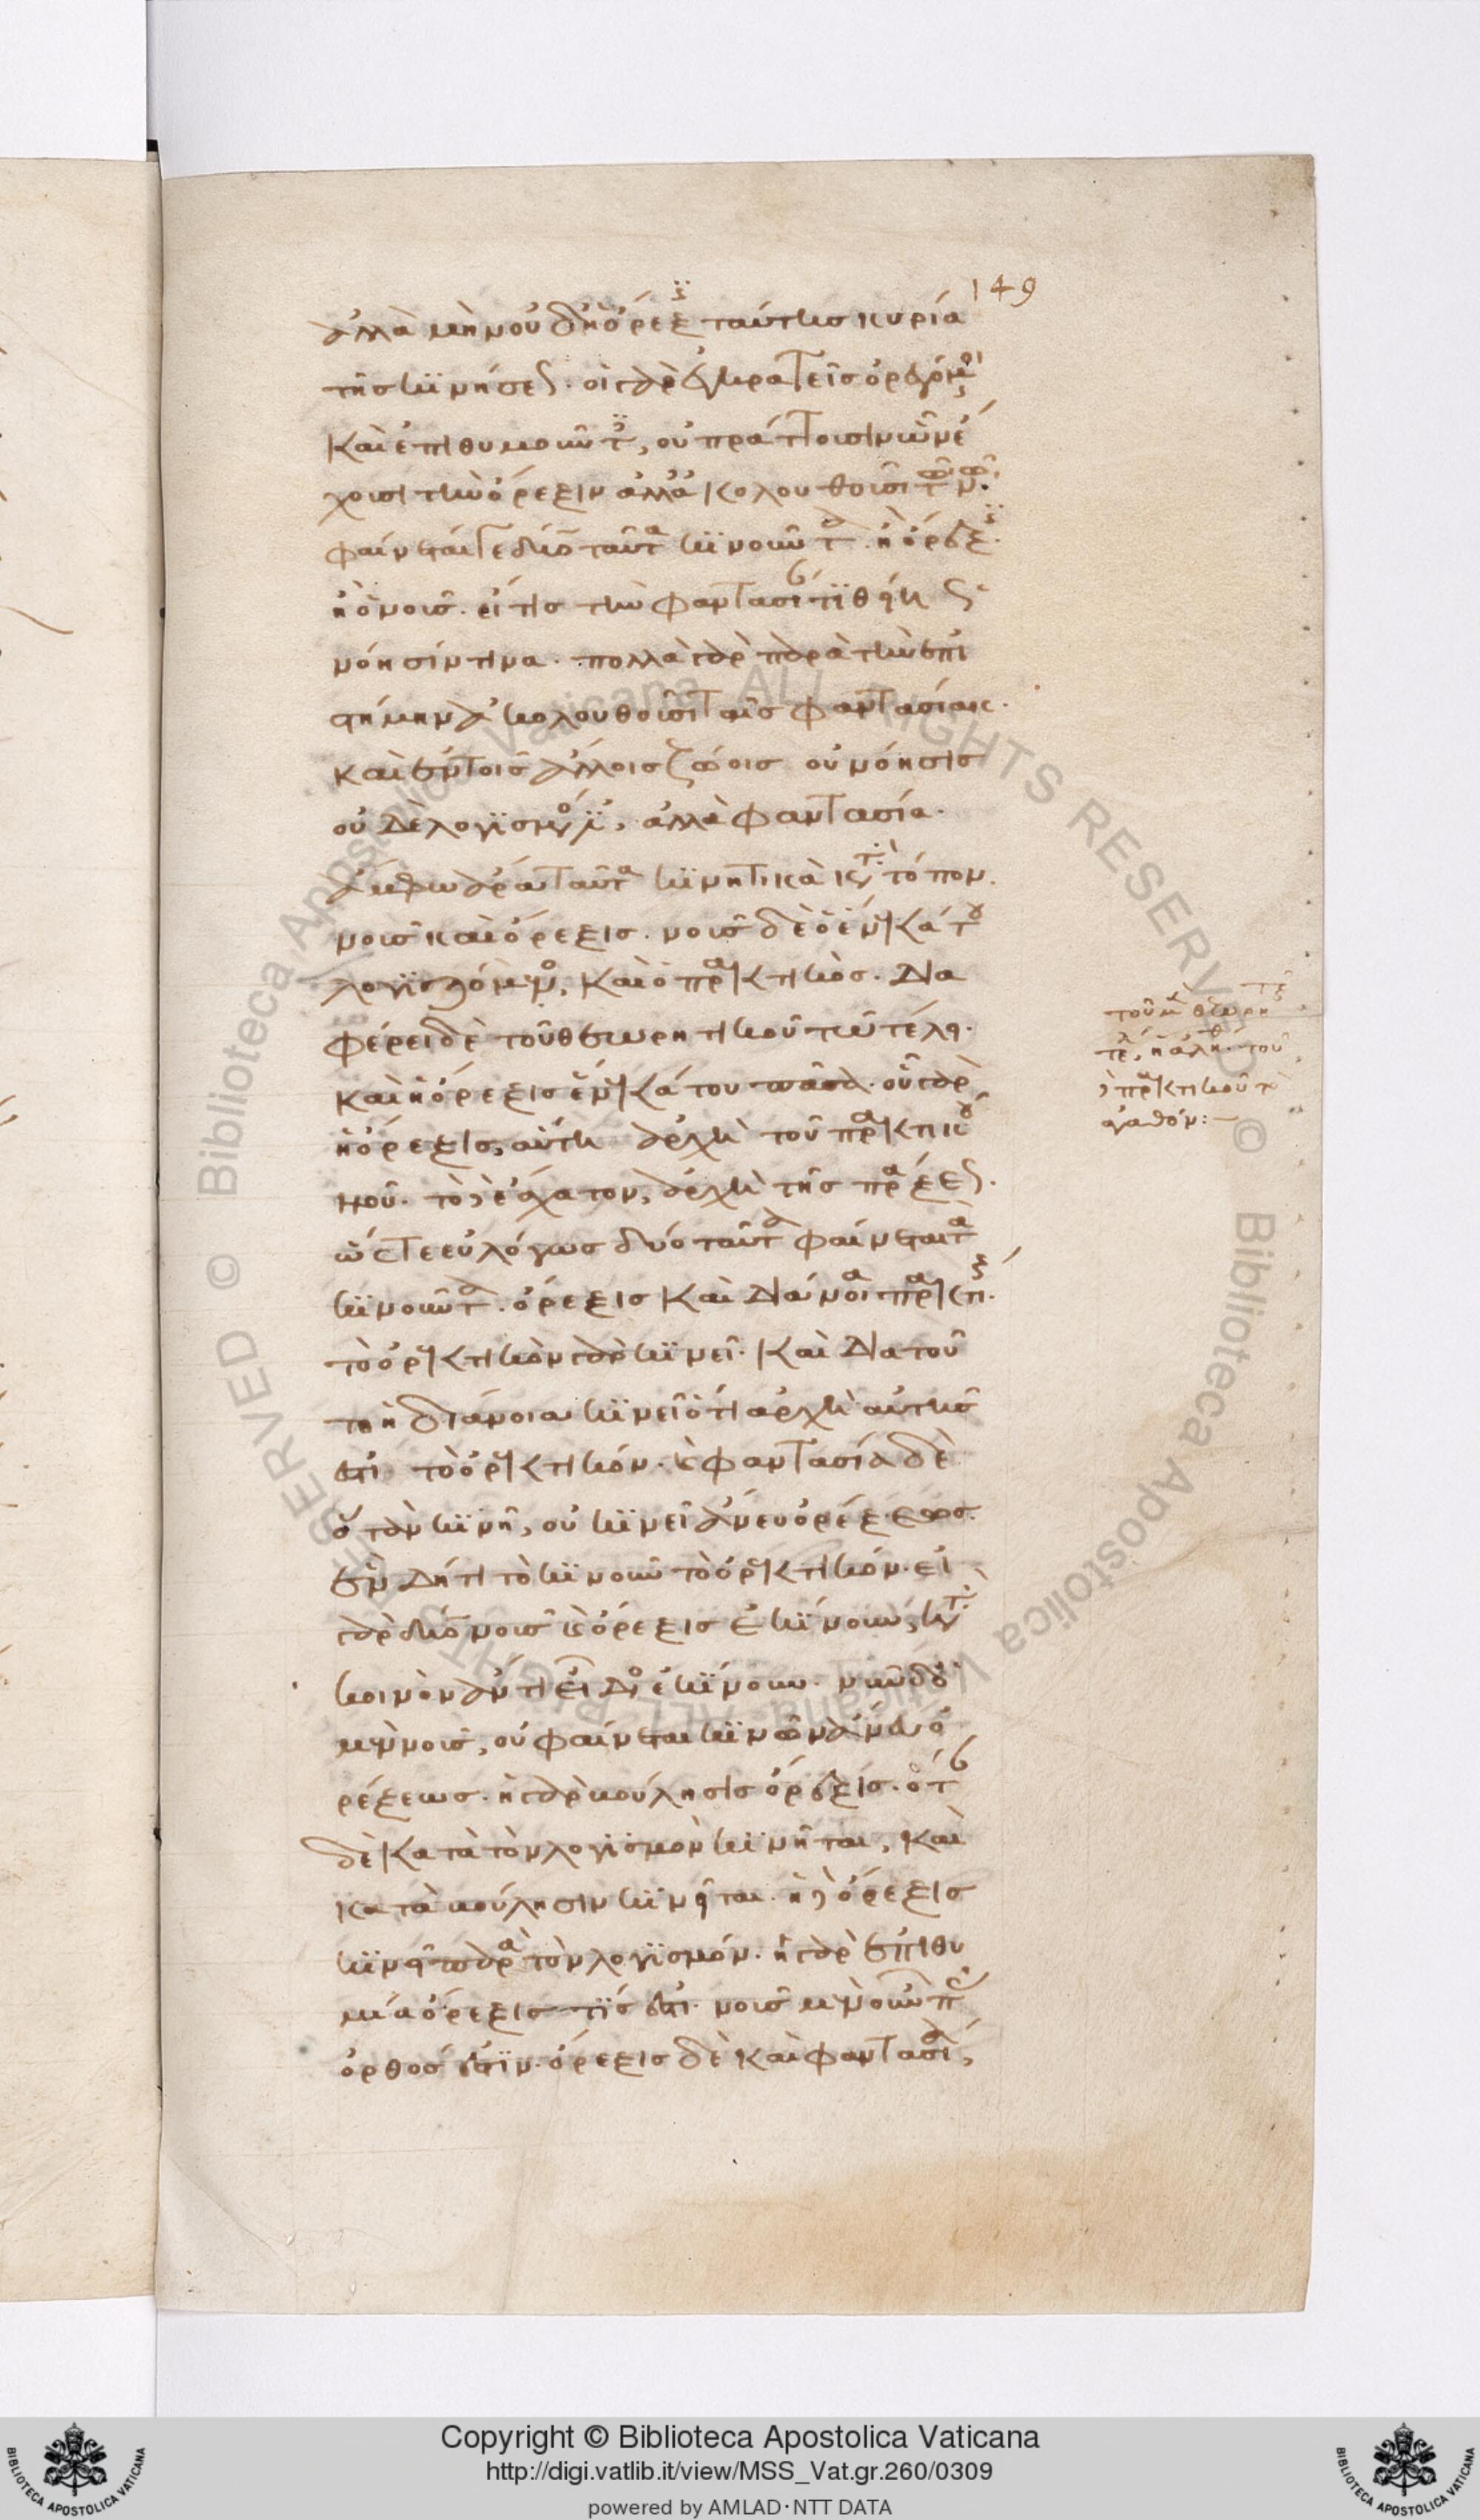 149
ἀλλὰ μὴν οὐδ' ἡ ὄρεξις ταύτης κυρία
τῆς κινήσεως. οἱ γὰρ ἐγκρατεῖς ὀρεγόμενοι
καὶ ἐπιθυμοῦντες, οὐ πράττουσιν ὧν ἔ
χουσι τὴν ὄρεξιν ἀλλ' ἀκολουθοῦσι τῷ νῷ.
φαίνεται γε δύο ταῦτα κινοῦντα. ἢ ὄρεξις
ἢ ὁ νοῦς. εἴ τις τὴν φαντασίαν τιθείη ὡς
νόησίν τινα. πολλὰ γὰρ παρὰ τὴν ἐπι
στήμην ἀκολουθοῦσι ταῖς φαντασίαις.
καὶ ἐν τοῖς ἄλλοις ζώοις οὐ νόησις
οὐδὲ λογισμός ἐστιν, ἀλλὰ φαντασία.
ἄμφω ἄρα ταῦτα κινητικὰ κατὰ τόπον.
νοῦς καὶ ὄρεξις. νοῦς δὲ ὁ ἕνεκά του
λογιζόμενος, καὶ ὁ πρακτικός. δια
φέρει δὲ τοῦ θεωρητικοῦ τῷ τέλει.
καὶ ἡ ὄρεξις ἕνεκά του πᾶσα. οὗ γὰρ
ἡ ὄρεξις, αὕτη ἀρχὴ τοῦ πρακτικοῦ
νοῦ. τὸ δ' ἔσχατον, ἀρχὴ τῆς πράξεως.
ὥστε εὐλόγως δύο ταῦτα φαίνεται τὰ
κινοῦντα. ὄρεξις καὶ διάνοια πρακτική.
τὸ ὀρεκτικὸν γὰρ κινεῖ. καὶ διὰ τοῦ
το ἡ διάνοια κινεῖ ὅτι ἀρχὴ αὐτῆς
ἐστι τὸ ὀρεκτικόν. καὶ ἡ φαντασία δὲ
ὅταν κινῇ, οὐ κινεῖ ἄνευ ὀρέξεως.
ἓν δή τι τὸ κινοῦν τὸ ὀρεκτικόν. εἰ
γὰρ δύο νοῦς καὶ ὄρεξις ἐκίνουν, κατὰ
κοινὸν ἄν τι εἶδος ἐκίνουν. νῦν δὲ ὁ
μὲν νοῦς, οὐ φαίνεται κινῶν ἄνευ ὀ
ρέξεως. ἡ γὰρ βούλησις ὄρεξις. ὅταν
δὲ κατὰ τὸν λογισμὸν κινῆται, καὶ
κατὰ βούλησιν κινεῖται. ἡ δ' ὄρεξις
κινεῖ παρὰ τὸν λογισμόν. ἡ γὰρ ἐπιθυ
μία ὄρεξις τίς ἐστι. νοῦς μὲν οὖν πᾶς
ὀρθός ἐστιν. ὄρεξις δὲ καὶ φαντασία,
τοῦ μὲν θεωρη
τέλος, ἡ ἀλήθεια. τοῦ
δὲ πρακτικοῦ τὸ
ἀγαθόν:
Copyright © Biblioteca Apostolica Vaticana
http://digi.vatlib.it/view/MSS_Vat.gr.260/0309
powered by AMLAD·NTT DATA